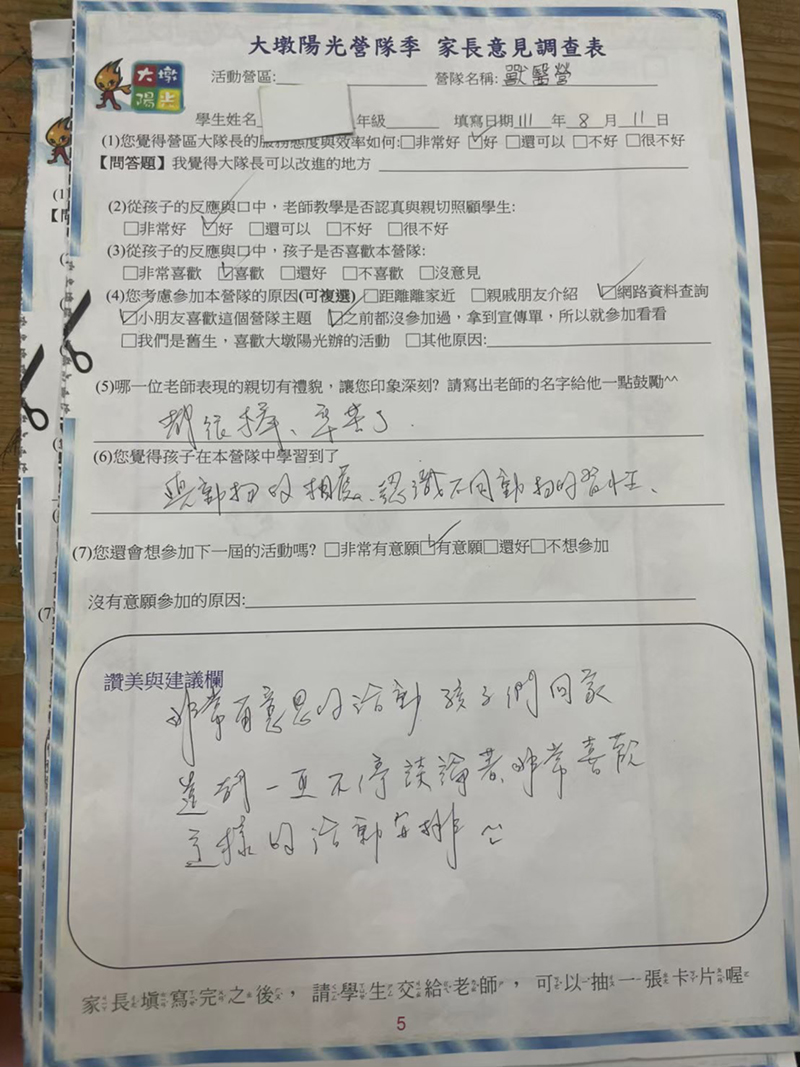 大墩陽光營隊季 家長意見調查表
大墩
陽光
活動營區: 營隊名稱: 獸醫營
學生姓名 年級 填寫日期 111 年 8 月 11 日
(1)您覺得營區大隊長的服務態度與效率如何:□非常好 ☑好 □還可以 □不好 □很不好
【問答題】我覺得大隊長可以改進的地方
(2)從孩子的反應與口中，老師教學是否認真與親切照顧學生:
□非常好 ☑好 □還可以 □不好 □很不好
(3)從孩子的反應與口中，孩子是否喜歡本營隊:
□非常喜歡 ☑喜歡 □還好 □不喜歡 □沒意見
(4)您考慮參加本營隊的原因(可複選) □距離離家近 □親戚朋友介紹 ☑網路資料查詢
☑小朋友喜歡這個營隊主題 ☑之前都沒參加過，拿到宣傳單，所以就參加看看
□我們是舊生，喜歡大墩陽光辦的活動 □其他原因:
(5)哪一位老師表現的親切有禮貌，讓您印象深刻? 請寫出老師的名字給他一點鼓勵^^
都很棒、辛苦了.
(6)您覺得孩子在本營隊中學習到了
與動物的相處、認識不同動物的習性、
(7)您還會想參加下一屆的活動嗎? □非常有意願 ☑有意願 □還好 □不想參加
沒有意願參加的原因:
讚美與建議欄
非常有意思的活動 孩子們回家
都一直不停談論著、非常喜歡
這樣的活動安排 ^^
家長填寫完之後，請學生交給老師，可以抽一張卡片喔
5
(1)
【問
(7